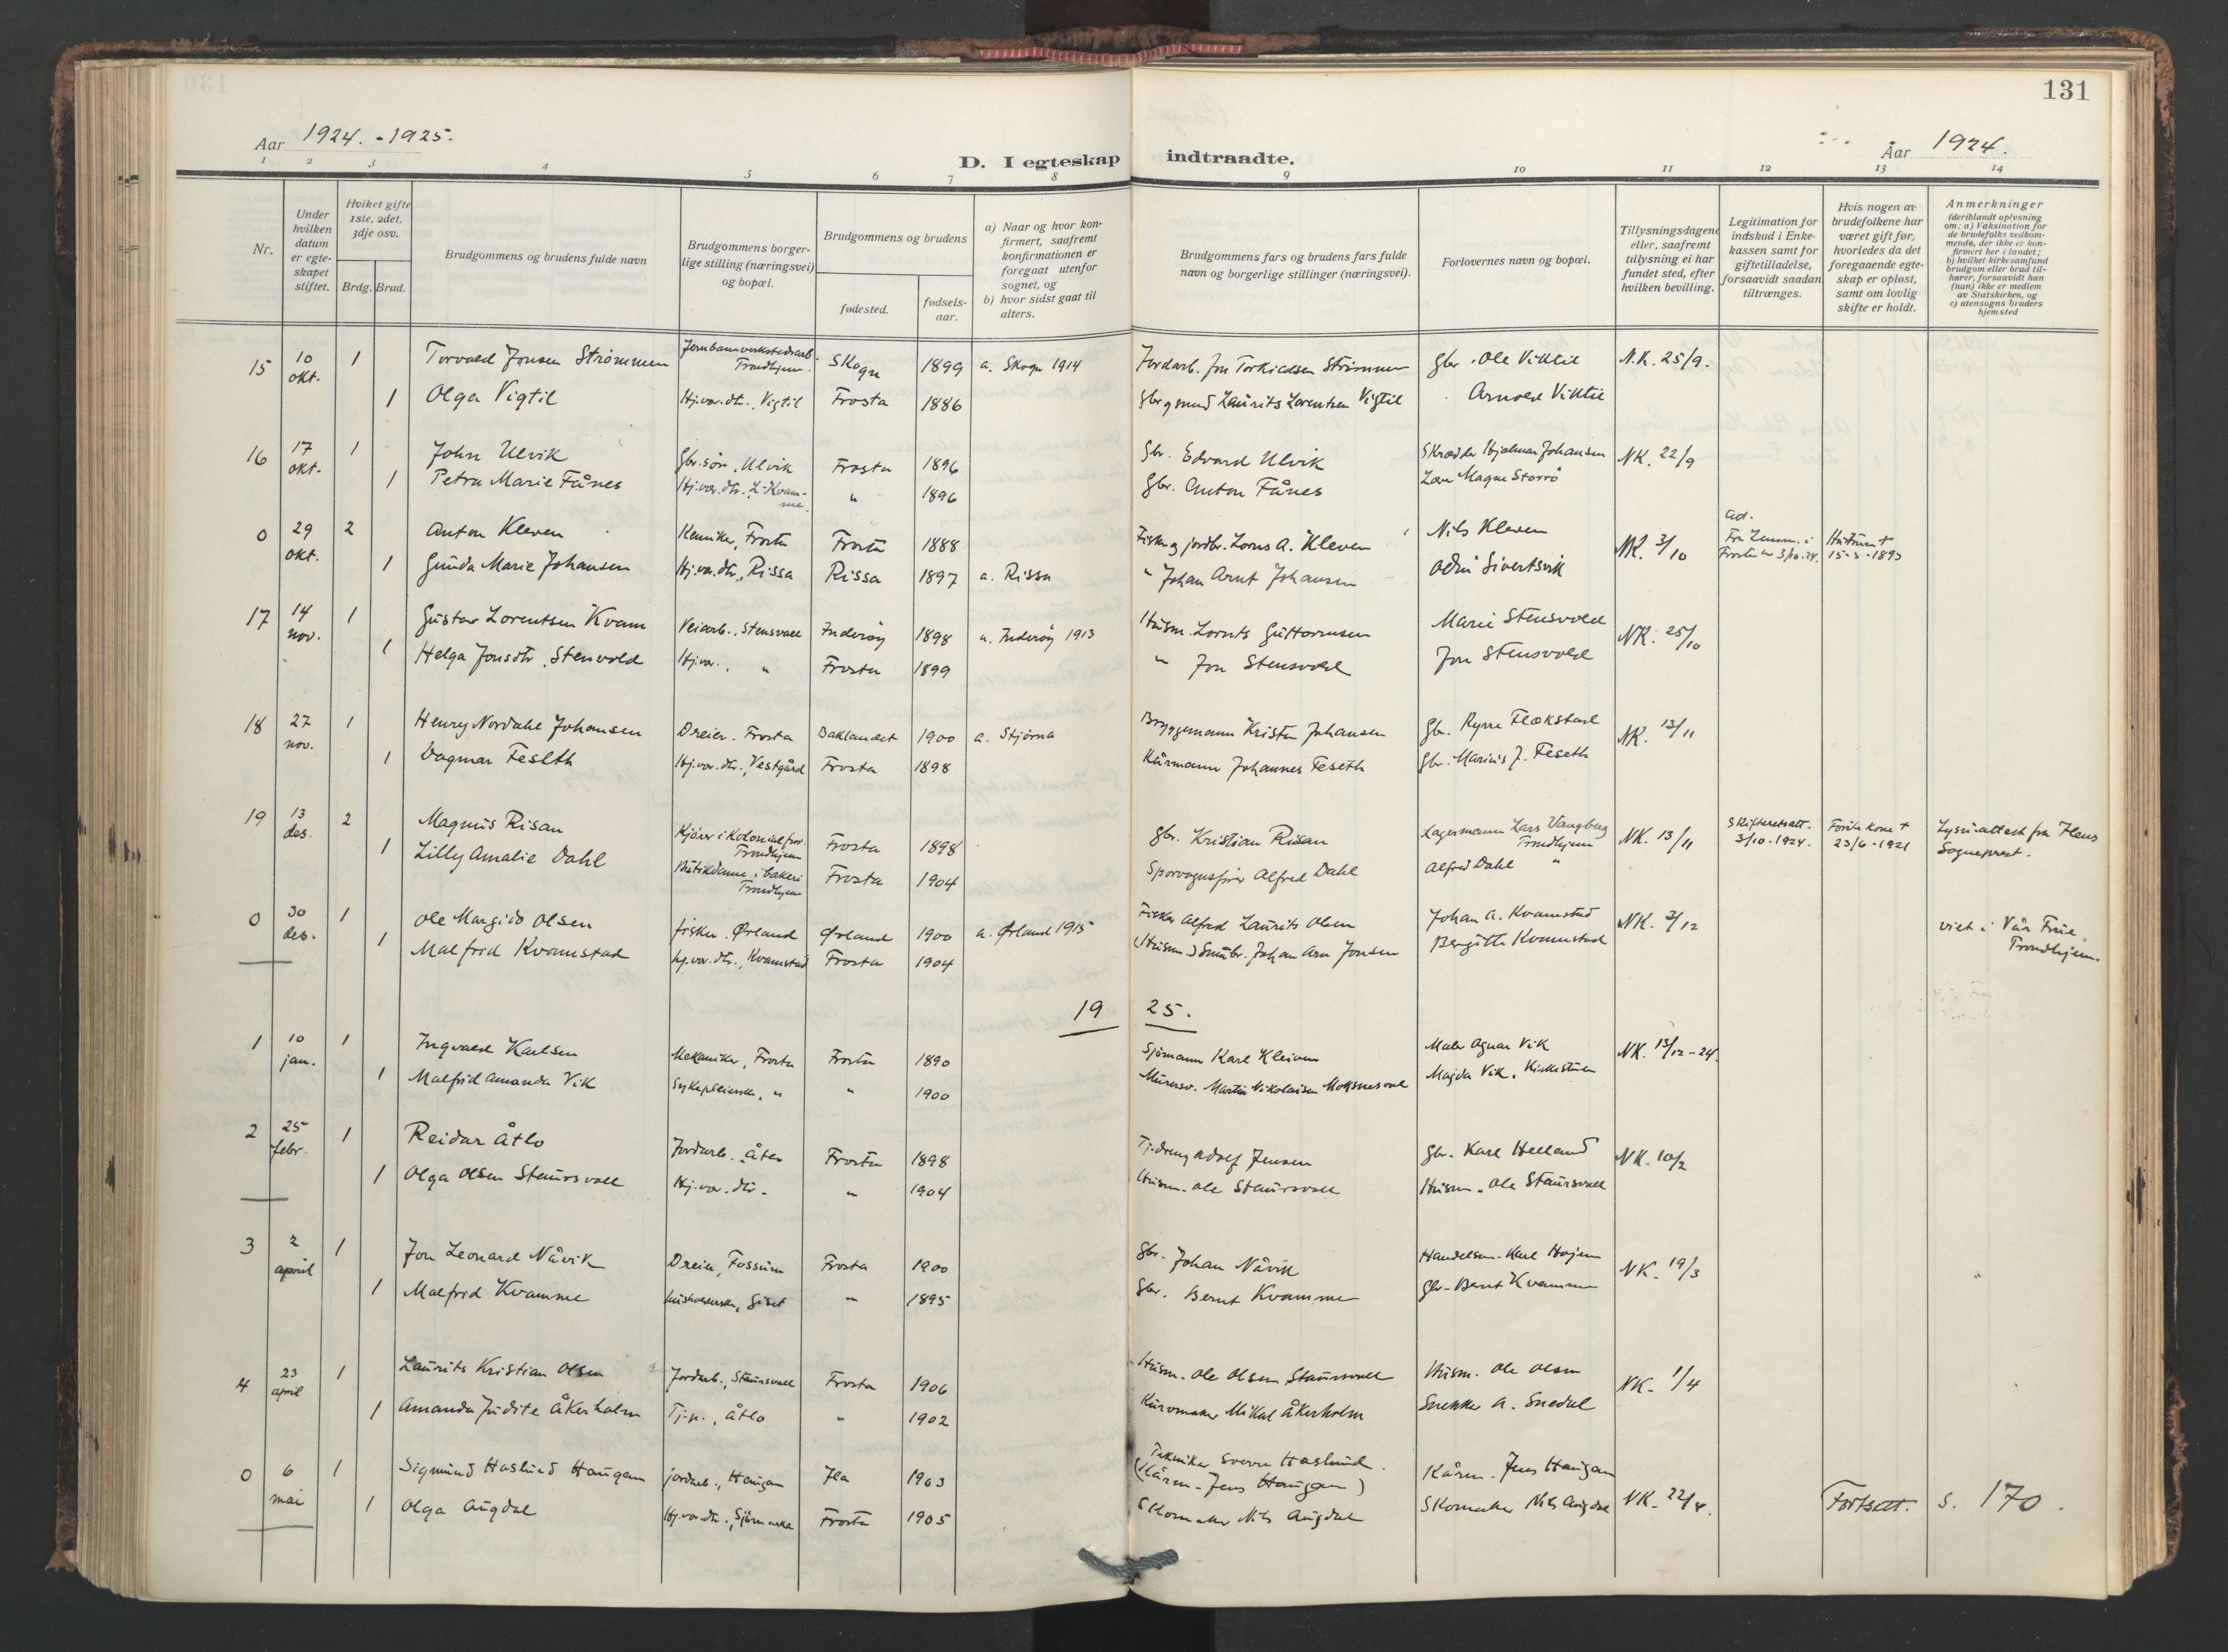 131
Aar 1924.-1925.
D. I egteskap indtraadte.
Aar 1924.
1 2 3 4 5 6 7 8 9 10 11 12 13 14
Nr.
Under hvilken datum er egteskapet stiftet.
Hviket gifte 1ste, 2det, 3dje osv.
Brdg. Brud.
Brudgommens og brudens fulde navn
Brudgommens borgerlige stilling (næringsvei) og bopæl.
Brudgommens og brudens
fødested.
fødselsaar.
a) Naar og hvor konfirmert, saafremt konfirmationen er foregaat utenfor sognet, og
b) hvor sidst gaat til alters.
Brudgommens fars og brudens fars fulde navn og borgerlige stillinger (næringsvei).
Forlovernes navn og bopæl.
Tillysningsdagene eller, saafremt tillysning ei har fundet sted, efter hvilken bevilling.
Legitimation for indskud i Enkekassen samt for giftetilladelse, forsaavidt saadan tiltrænges.
Hvis nogen av brudefolkene har været gift før, hvorledes da det foregaaende egteskap er opløst, samt om lovlig skifte er holdt.
Anmerkninger (deriblandt oplysning om: a) Vaksination for de brudefolks vedkommende, der ikke er konfirmert her i landet; b) hvilket kirkesamfund brudgom eller brud tilhører, forsaavidt han (hun) ikke er medlem av Statskirken, og c) utensogns bruders hjemsted
15 10 okt. 1 Torvald Jonsen Strømmen Jernbaneverkstedsarb. Trondhjem. Skogn 1899 a. Skogn 1914 Jordarb. Jon Torkildsen Strømmen Gbr. Ole Viktil N.K. 25/9.
1 Olga Vigtil Hj.vær. dtr., Vigtil Frosta 1886 Gbr og smed Laurits Lorentsen Vigtil Arnold Viktil
16 17 okt. 1 John Ulvik Gbr. søn, Ulvik Frosta 1896 Gbr. Edvard Ulvik Skrædder Hjalmar Johansen NK. 22/9
1 Petra Marie Fånes Hj.vær. dtr., L-Kvamme. " 1896 Gbr. Anton Fånes Magne Storrö
0 29 okt. 2 Anton Kleven Kemiker, Frosta Frosta 1888 Fisker og jordbr. Lorns A. Kleven Nils Kleven NK. 3/10 ad. Fra Lensm. i Frosta av 3/10.24. Hustrun +
15-3-1893
1 Gunda Marie Johansen Hj.vær. dtr., Rissa Rissa 1897 a. Rissa " Johan Arnt Johansen Odin Sivertsvik
17 14 nov. 1 Gustav Lorentsen Kvam Veiarb., Stensvold Inderøy 1898 a. Inderøy 1913 Husm. Lornts Guttormsen Marie Stensvold NK. 25/10
1 Helga Jonsdtr. Stenvold Hj.vær., " Frosta 1899 " Jon Stensvold Jon Stensvold
18 27 nov. 1 Henry Nordahl Johansen Dreier. Frosta Baklandet 1900 a. Stjørna Bryggemann Kristen Johansen Gb. Kyrre Flakstad NK. 13/11
1 Dagmar Feseth Hj.vær. dtr., Vestgård Frosta 1898 Kårmann Johannes Feseth Gbr. Marius J. Feseth
19 13 des. 2 Magnus Risan Kjører i Kolonialfor. Trondhjem Frosta 1898 Gbr. Kristian Risan Lagermann Lars Vangberg Trondhjem NK. 13/11 Skifteretsatt. 3/10-1924. Forite kone + 23/6-1921 Lysn.attest fra Hlens Sogneprest.
1 Lilly Amalie Dahl Butikdame i bakeri Trondhjem Frosta 1904 Sporvognsfører Alfred Dahl Alfred Dahl "
0 30 des. 1 Ole Margido Olsen fisker. Ørland Ørland 1900 a. Ørland 1915 Fisker Alfred Laurits Olsen Johan A. Kvamstad NK. 3/12 viet i Vår Frue, Trondhjem.
1 Malfrid Kvamstad hj.vær. dtr., Kvamstad Frosta 1904 (Husm.) Småbr. Johan Arn Jonsen Bergitte Kvamstad
19 25.
1 10 jan. 1 Ingvald Karlsen Mekaniker, Frosta Frosta 1890 Sjömann Karl Kleiven Maler Agnar Vik NK. 13/12-24.
1 Malfrid Amanda Vik Sykepleierske, " " 1900 Murersv. Martin Nikolaisen Magda Vik, Kirkestuen
2 25 febr. 1 Reidar Åtlo Jordarb. Åtlo Frosta 1898 Tj.dreng Adolf Jensen Gbr. Karl Helland NK. 10/2
1 Olga Olsen Staursvoll Hj.vær. dtr. " 1904 Husm. Ole Staursvoll Husm. Ole Staursvoll
3 2 april 1 Jon Leonard Nåvik Dreier, Fossum Frosta 1900 Gbr. Johan Nåvik Handelsm. Karl Hojem NK. 19/3
1 Malfrid Kvamme Giset " 1895 Gbr. Bernt Kvamme Gbr. Bernt Kvamme
4 23 april 1 Laurits Kristian Olsen Jordarb., Staursvoll Frosta 1906 Husm. Ole Olsen Staursvoll Husm. Ole Olsen NK. 1/4
1 Amanda Judite Åkerholm Tj.p., Åtlo " 1902 Kurvmaker Mikal Åkerholm Snekker A. Snedal
0 6 mai 1 Sigmund Haslund Haugan jordarb., Haugan Ila 1903 Tekniker Sverre Haslund. (Kårm. Jens Haugan) Kårm. Jens Haugan NK. 22/4.
1 Olga Augdal Hj.vær.dtr., Frosta 1905 Skomaker Nils Augdal Skomaker Nils Augdal
Fortsatt. s. 170.